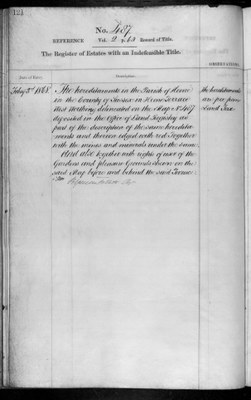 124
No. 487
REFERENCE Vol. 2 p. 63 Record of Title.
The Register of Estates with an Indefeasible Title.
Date of Entry.
Description.
OBSERVATIONS.
Feby 3rd 1868
The hereditaments in the Parish of Heene
in the County of Sussex in Heene Terrace
West Worthing delineated on the Map No 487
deposited in the Office of Land Registry as
part of the description of the same heredita-
ments and thereon edged with red Together
with the mines and minerals under the same
And also together with rights of user of the
Gardens and pleasure Grounds shown on the
said Map before and behind the said Terrace
The hereditaments
are free from
Land Tax